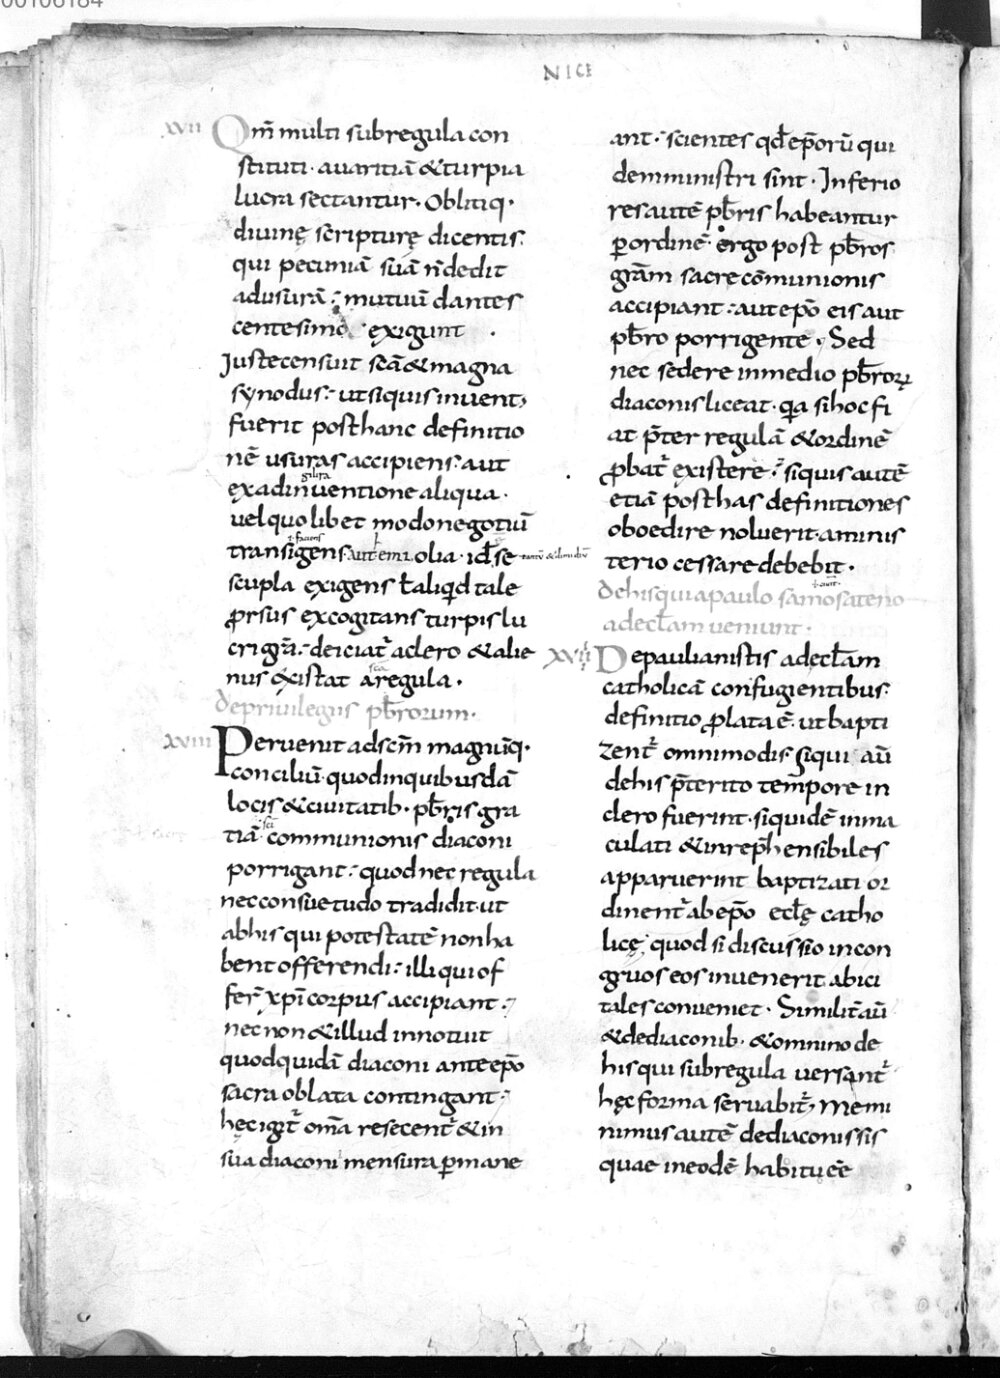 00106184
NICE
XVII Qm̄ multi subregula con
stituti · auaritiā &turpia
lucra sectantur · Obliti q·
diuinę scripturę dicentis:
qui pecuniā suā n̄ dedit
adusurā: mutuū dantes
centesimā exigunt ·
Iuste censuit scā & magna
synodus: ut siquis inuent,
fuerit posthanc definitio
nē usuras accipiens: aut
exadinuentione aliqua ·
uel quolibet modo negotiū
ł faciens
transigens: aut emiolia · id ÷ se
scupla exigens ł aliqd tale
ꝓrsus excogitans turpis lu
cri grā: deiciat̄ aclero &alie
nus existat aregula ·
de priuilegiis p̄brorum ·
XVIII Peruenit adscm̄ magnūq·
conciliū · quodinquibusdā
locis &ciuitatib · p̄bris gra
tiā communionis diaconi
porrigant: quod nec regula
nec consuetudo tradidit · ut
abhis qui potestatē non ha
bent offerendi: illi qui of
fer̄ xp̄i corpus accipiant:
nec non &illud innotuit
quod quidā diaconi ante ep̄o
sacra oblata contingant:
hęc igit̄ om̄a resecent̄ & in
sua diaconi mensura ꝑmane
ant: scientes qd̄ ep̄orū qui
dem ministri sint · Inferio
res autē p̄bris habeantur
ꝑ ordinē · ergo post p̄bros
grām sacrę cōmunionis
accipiant: aut ep̄o eis aut
p̄bro porrigente · Sed
nec sedere inmedio p̄brorꝝ
diaconis liceat · qa si hoc fi
at p̄ter regulā &ordinē
ꝓbat̄ existere · siquis autē
etiā post has definitiones
oboedire noluerit · aminis
terio cessare debebit ·
de his qui apaulo samosateno
adecl̄am ueniunt ·
De paulianistis adecl̄am
catholicā confugientibus:
definitio ꝓlata ē · ut bapti
zent̄ omnimodis: siqui aū
de his p̄terito tempore in
clero fuerint · siquidē inma
culati &inrep̄hensibiles
apparuerint baptizati or
dinent̄ ab ep̄o ecl̄ę catho
licę · quod si discussio incon
gruos eos inuenerit · abici
tales conueniet · Similit̄ aū
&de diaconib · &omnino de
his qui sub regula uersant̄
hęc forma seruabit̄, Memi
nimus autē de diaconissis
quae in eodē habitu ēē